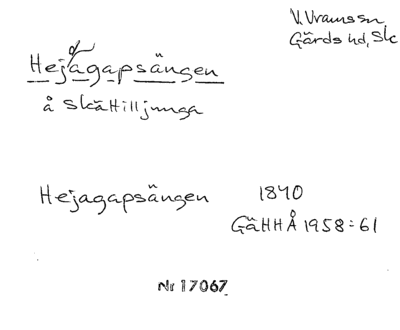 V. Vramssn,
Gärds hd, Skc
Hejagapsängen
å Skättilljunga
Hejagapsängen 1840
GäHHÅ 1958:61
Nr 17067